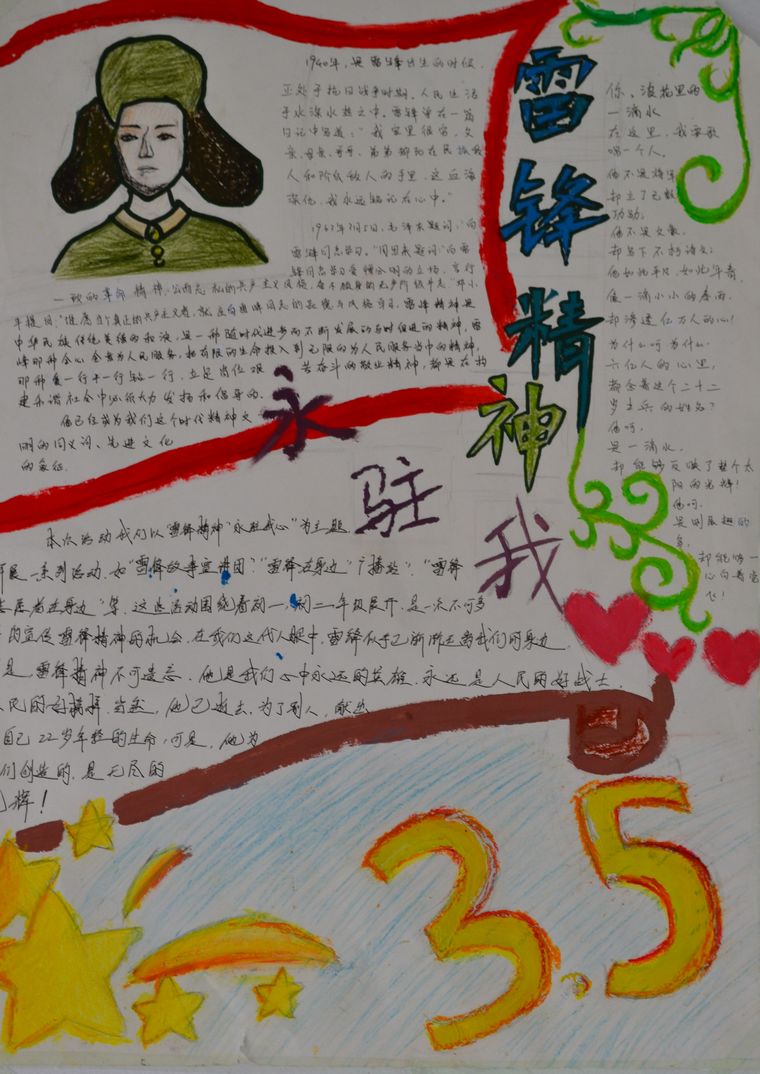 雷锋精神
永驻我
1940年,是雷锋出生的时候,
正处于抗日战争时期,人民生活
于水深火热之中。雷锋曾在一篇
日记中写道:"我家里很穷,父
亲、母亲、哥哥、弟弟都死在民族敌
人和阶级敌人的手里,这血海
深仇,我永远铭记在心中。"
1963年3月5日,毛泽东题词:"向
雷锋同志学习。"周恩来题词:"向雷
锋同志学习爱憎分明的立场,言行
一致的革命精神,公而忘私的共产主义风格,奋不顾身的无产阶级斗志。"邓小
平题词:"谁愿当个真正的共产主义者,就应向雷锋同志的品德与风格学习。雷锋精神是
中华民族传统美德的和,是一种随时代进步而不断发展与时俱进的精神,雷
锋那种全心全意为人民服务,把有限的生命投入到无限的为人民服务当中的精神,
那种爱一行干一行钻一行,立足岗位艰苦奋斗的敬业精神,都是在构
建和谐社会中必须大力发扬和倡导的。
他已经成为我们这个时代精神文
明的同义词、先进文化
的象征。
本次活动我们以"雷锋精神"永驻我心"为主题
开展一系列活动,如"雷锋故事宣讲团""雷锋在身边"广播站"、"雷锋
志愿者在身边"等,这些活动围绕着初一、初二年级展开,是一次不可多
内宣传雷锋精神的机会,在我们这代人眼中,雷锋似乎已渐渐走离我们的身边
是,雷锋精神不可遗忘,他是我们心中永远的英雄,永远是人民的好战士,
人民的好榜样,当然,他已逝去,为了别人,献出
自己22岁年轻的生命,可是,他为
们创造的,是无尽的
辉!
你,浪花里的
一滴水
在这里,我要歌
唱一个人,
他不是将军
却立了无数
功勋,
他不是文豪,
却写下不朽诗文;
他如此平凡,如此年青,
像一滴小小的春雨,
却渗透亿万人的心!
为什么呵为什么
六亿人的心里,
都念着这个二十二
岁士兵的姓名?
他呵,
是一滴水,
却能够反映了整个太
阳的光辉!
他呵,
是刚展翅的
鸟,
却能够一
心向着党
飞!
3.5